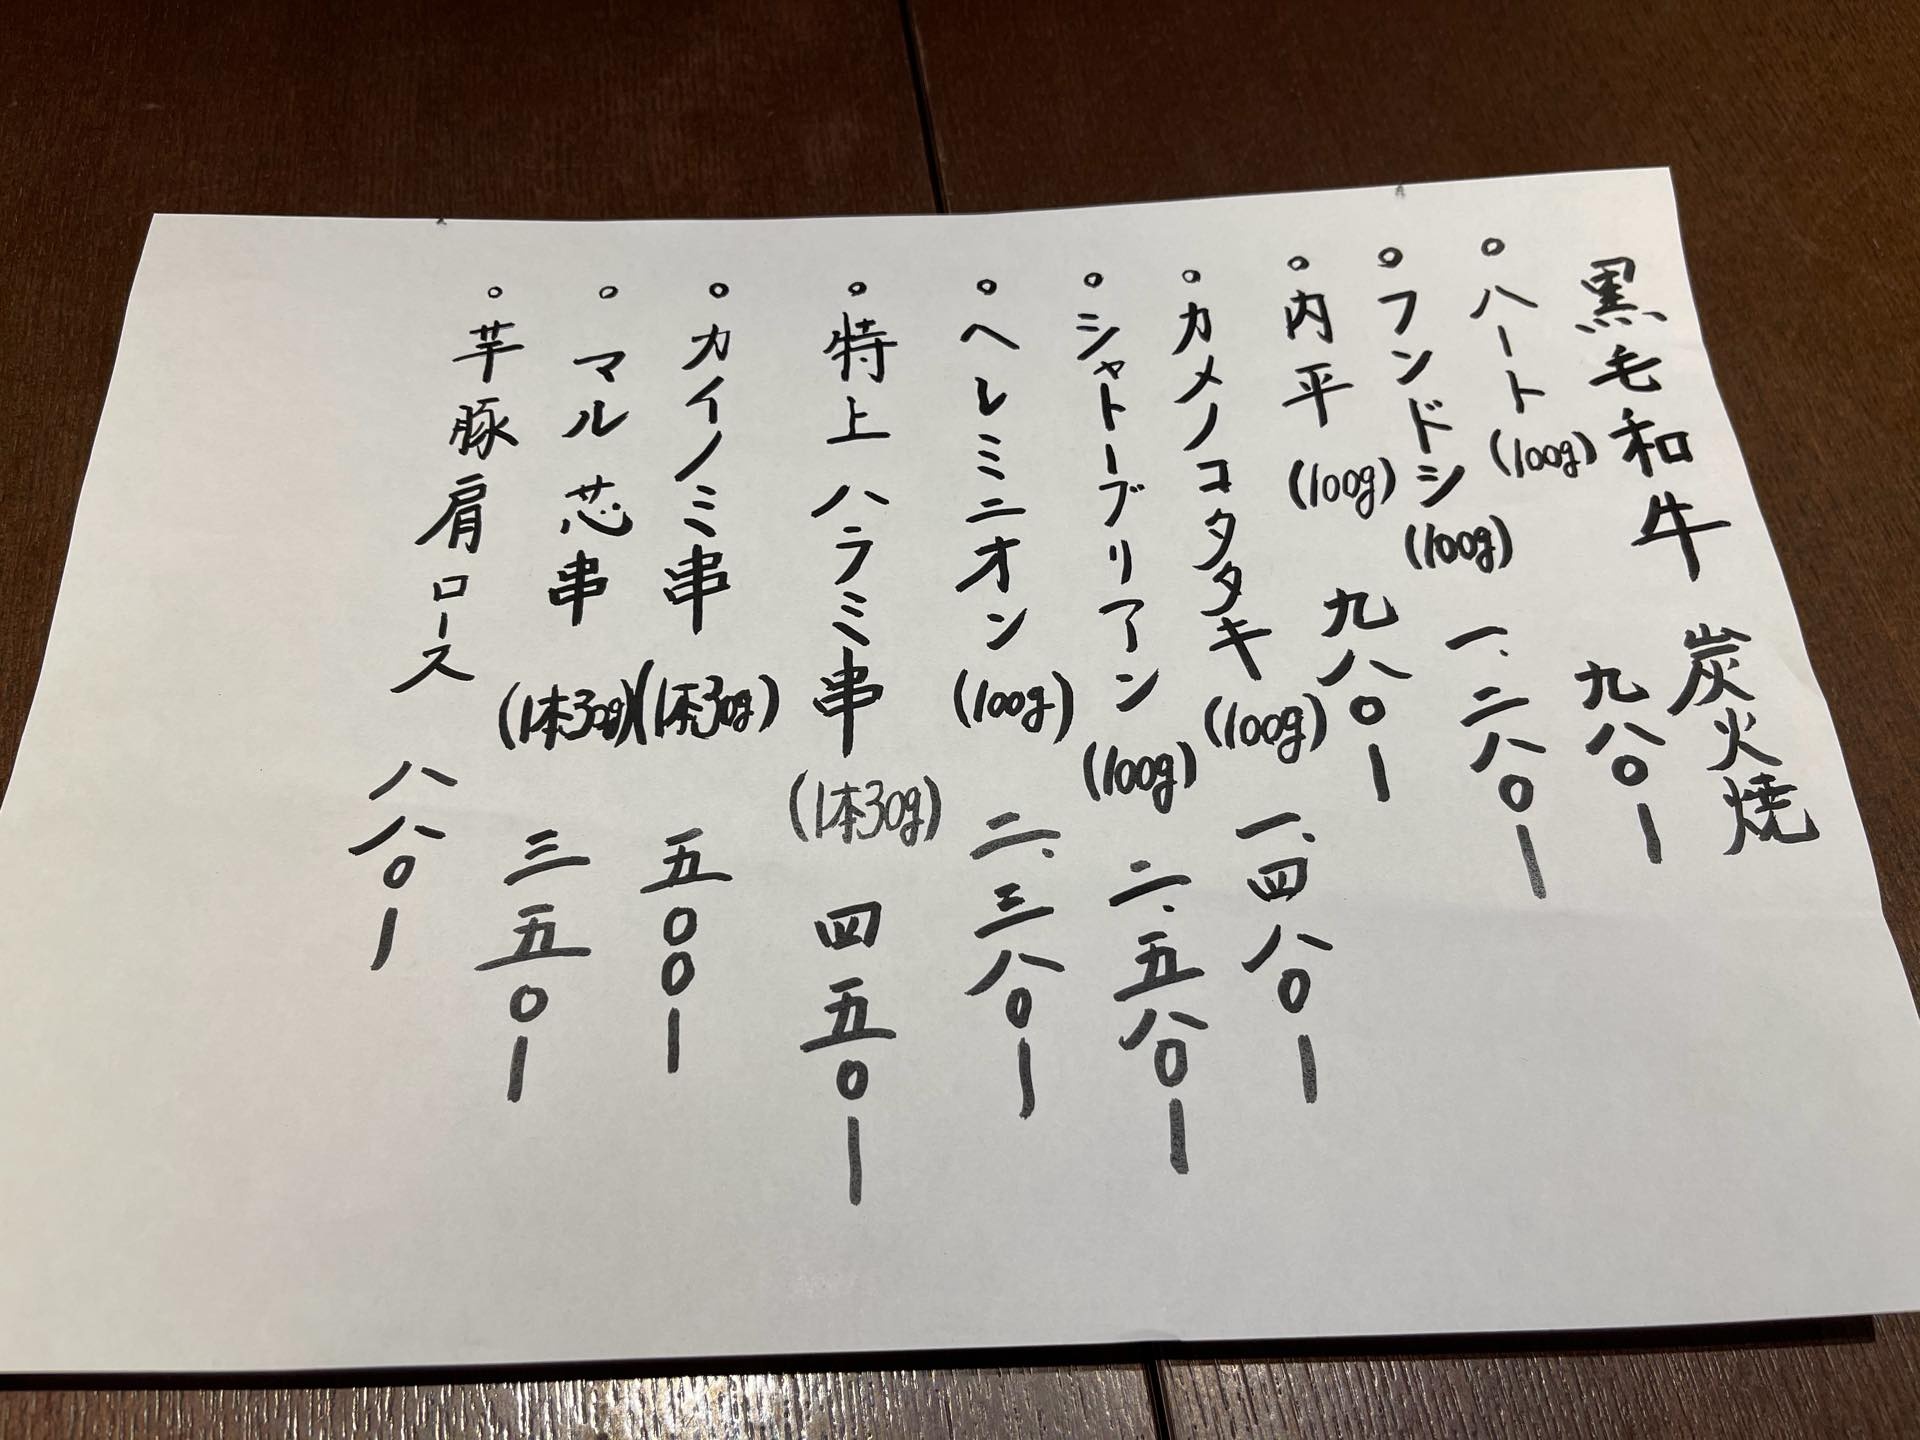 黒毛和牛 炭火焼
。ハート(100g) 九八〇ー
。フンドシ(100g) 一.二八〇ー
。内平(100g) 九八〇ー
。カメノコタタキ(100g) 一.四八〇ー
。シャトーブリアン(100g) 二.五八〇ー
。ヘレミニオン(100g) 二.三八〇ー
。特上ハラミ串(1本30g) 四五〇ー
。カイノミ串(1本30g) 五〇〇ー
。マル芯串(1本30g) 三五〇ー
。芋豚肩ロース 八八〇ー